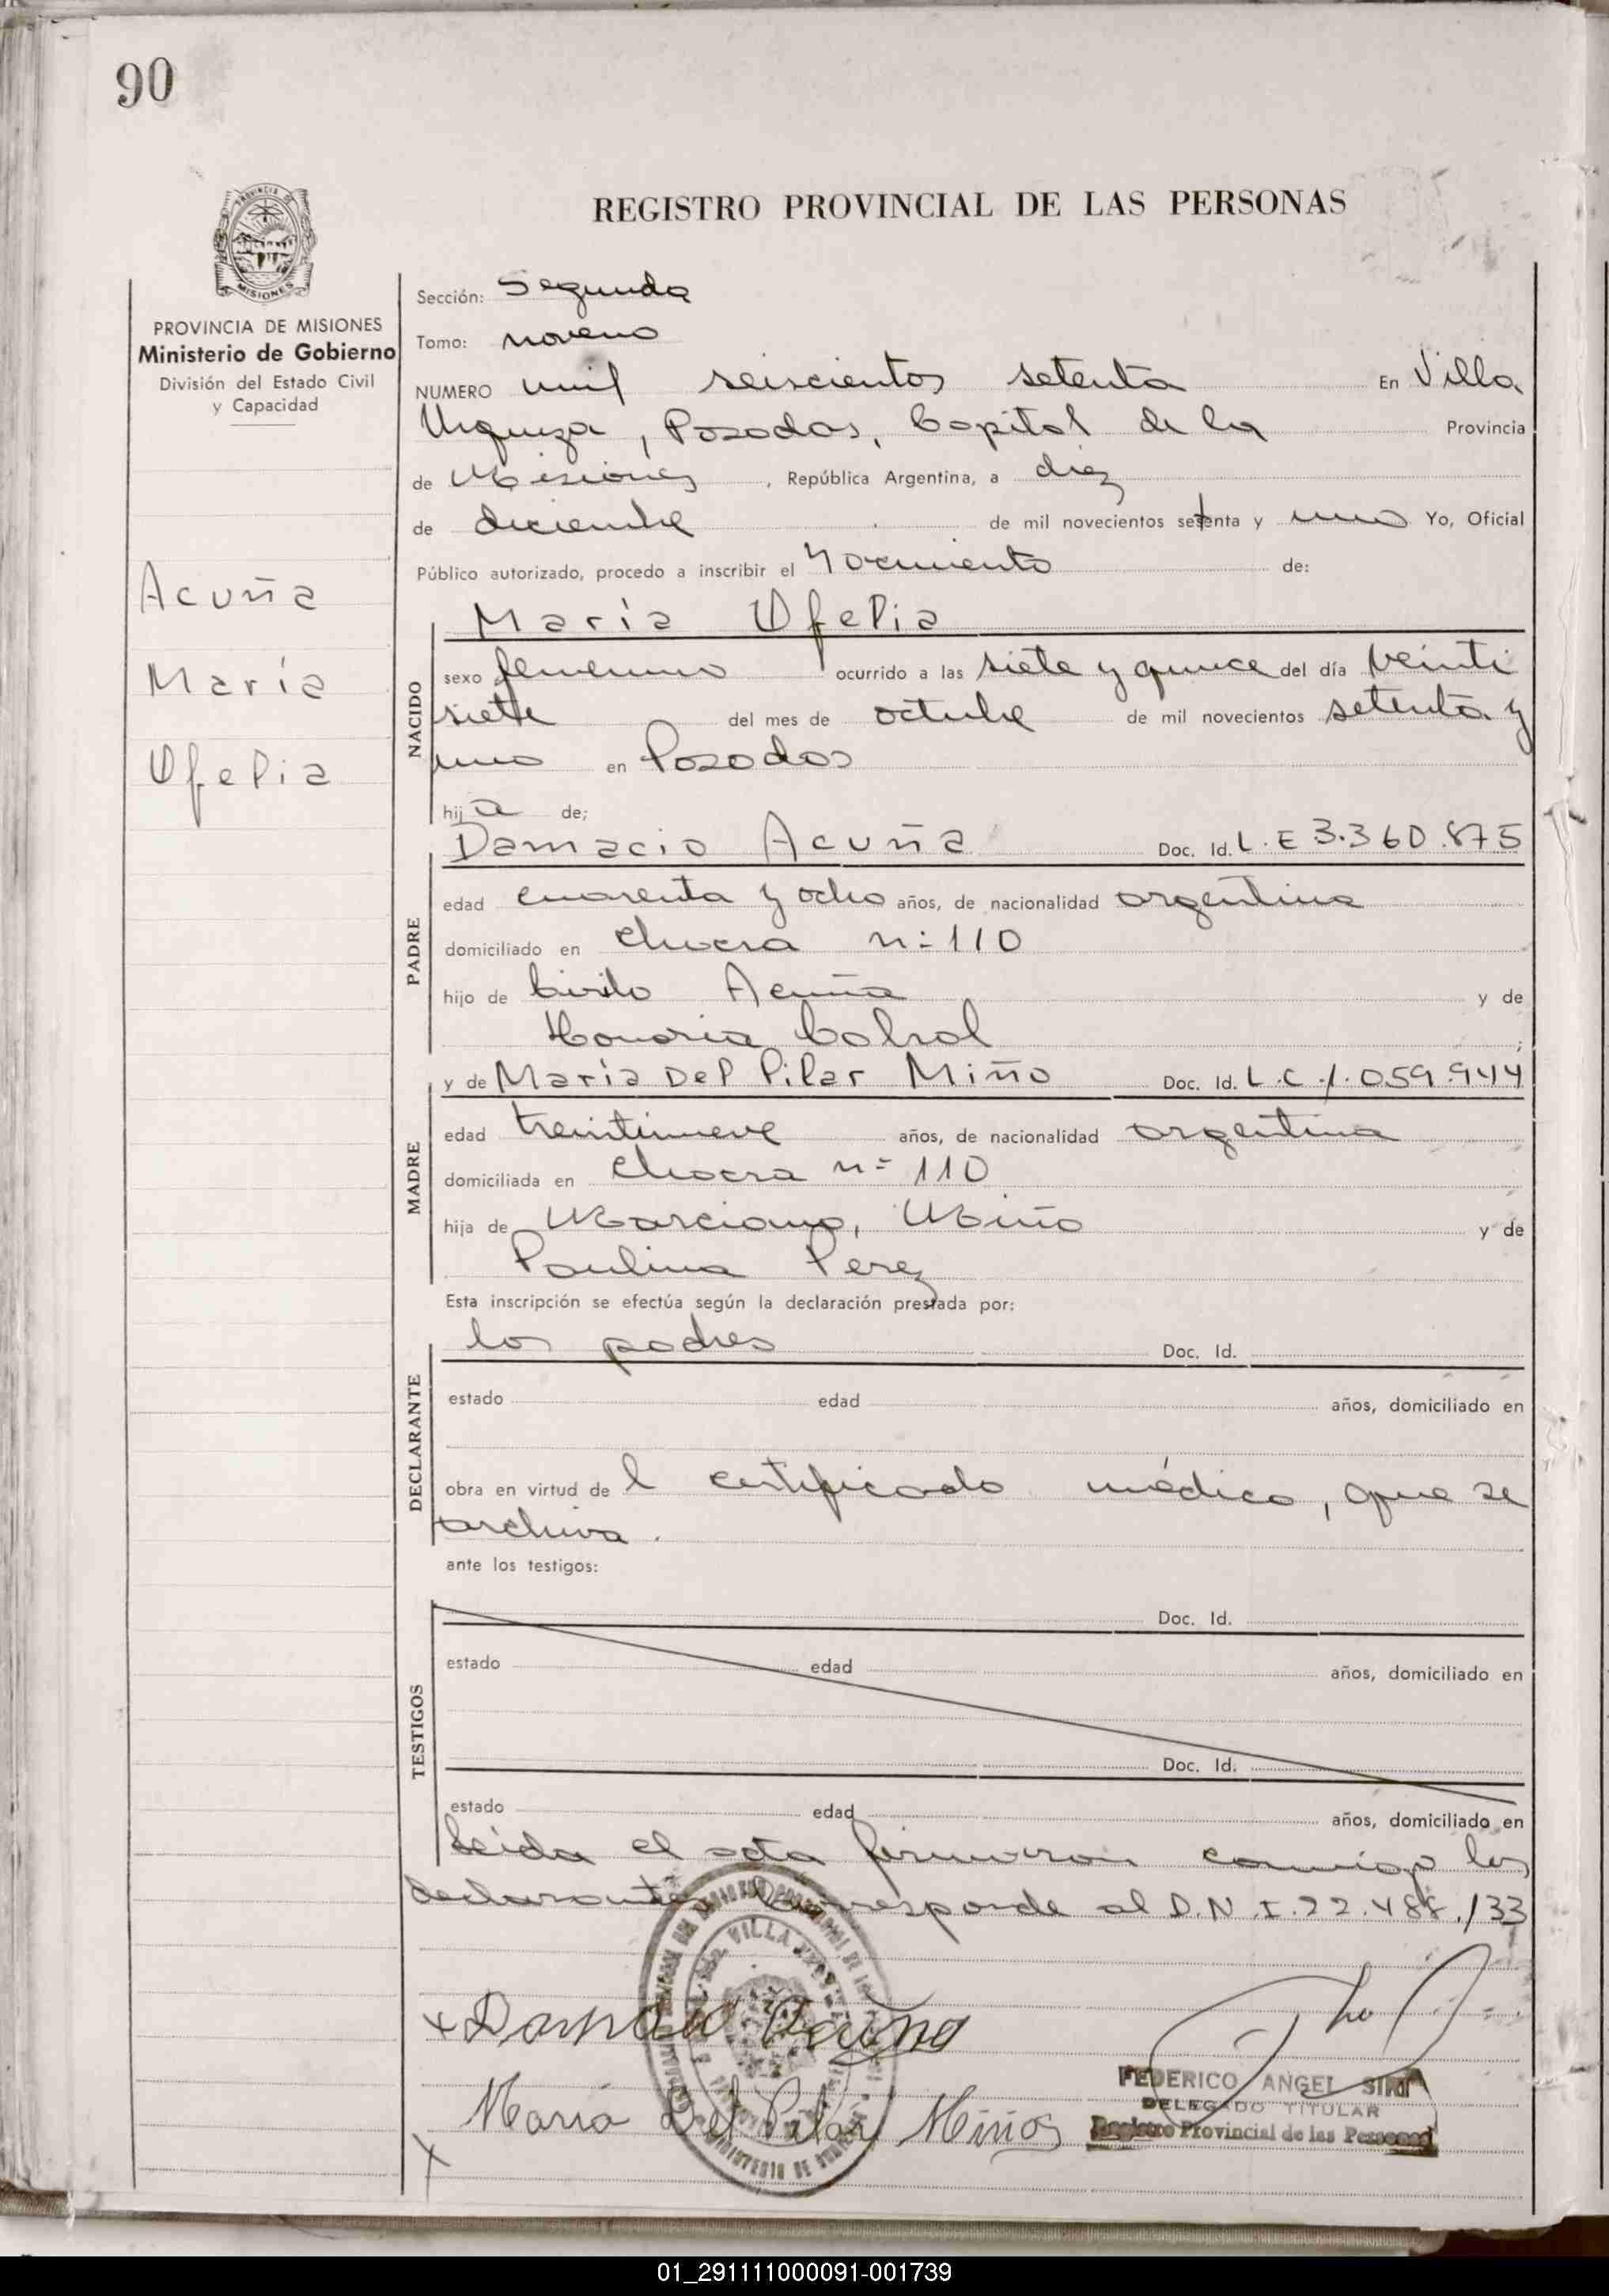 90
PROVINCIA
MISIONES
PROVINCIA DE MISIONES
Ministerio de Gobierno
División del Estado Civil
y Capacidad
Acuña
María
Ofelia
REGISTRO PROVINCIAL DE LAS PERSONAS
Sección: Segunda
Tomo: noveno
NUMERO mil seiscientos setenta En Villa
Urquiza, Posadas, Capital de la Provincia
de Misiones, República Argentina, a diez
de diciembre de mil novecientos setenta y uno Yo, Oficial
Público autorizado, procedo a inscribir el Nacimiento de:
NACIDO
María Ofelia
sexo femenino ocurrido a las siete y quince del día veinti
siete del mes de octubre de mil novecientos setenta y
uno en Posadas
hija de;
PADRE
Damacio Acuña Doc. Id. L.E 3.360.875
edad cuarenta y ocho años, de nacionalidad argentina
domiciliado en chacra nº 110
hijo de Cirilo Acuña y de
Honoria Cabral;
MADRE
y de María Del Pilar Miño Doc. Id. L.C 1.059.944
edad treintinueve años, de nacionalidad argentina
domiciliada en chacra nº 110
hija de Marciano, Miño y de
Paulina Perez
Esta inscripción se efectúa según la declaración prestada por:
DECLARANTE
los padres Doc. Id.
estado edad años, domiciliado en
obra en virtud del certificado médico, que se
archiva.
ante los testigos:
TESTIGOS
Doc. Id.
estado edad años, domiciliado en
Doc. Id.
estado edad años, domiciliado en
Leída el acta firmaron conmigo los
declarantes Corresponde al D.N.I. 22.488.133
VILLA
x Damacio Acuña
María Del Pilar Miños
x
FEDERICO ANGEL
DELEGADO TITULAR
Registro Provincial de las Personas
01_291111000091-001739